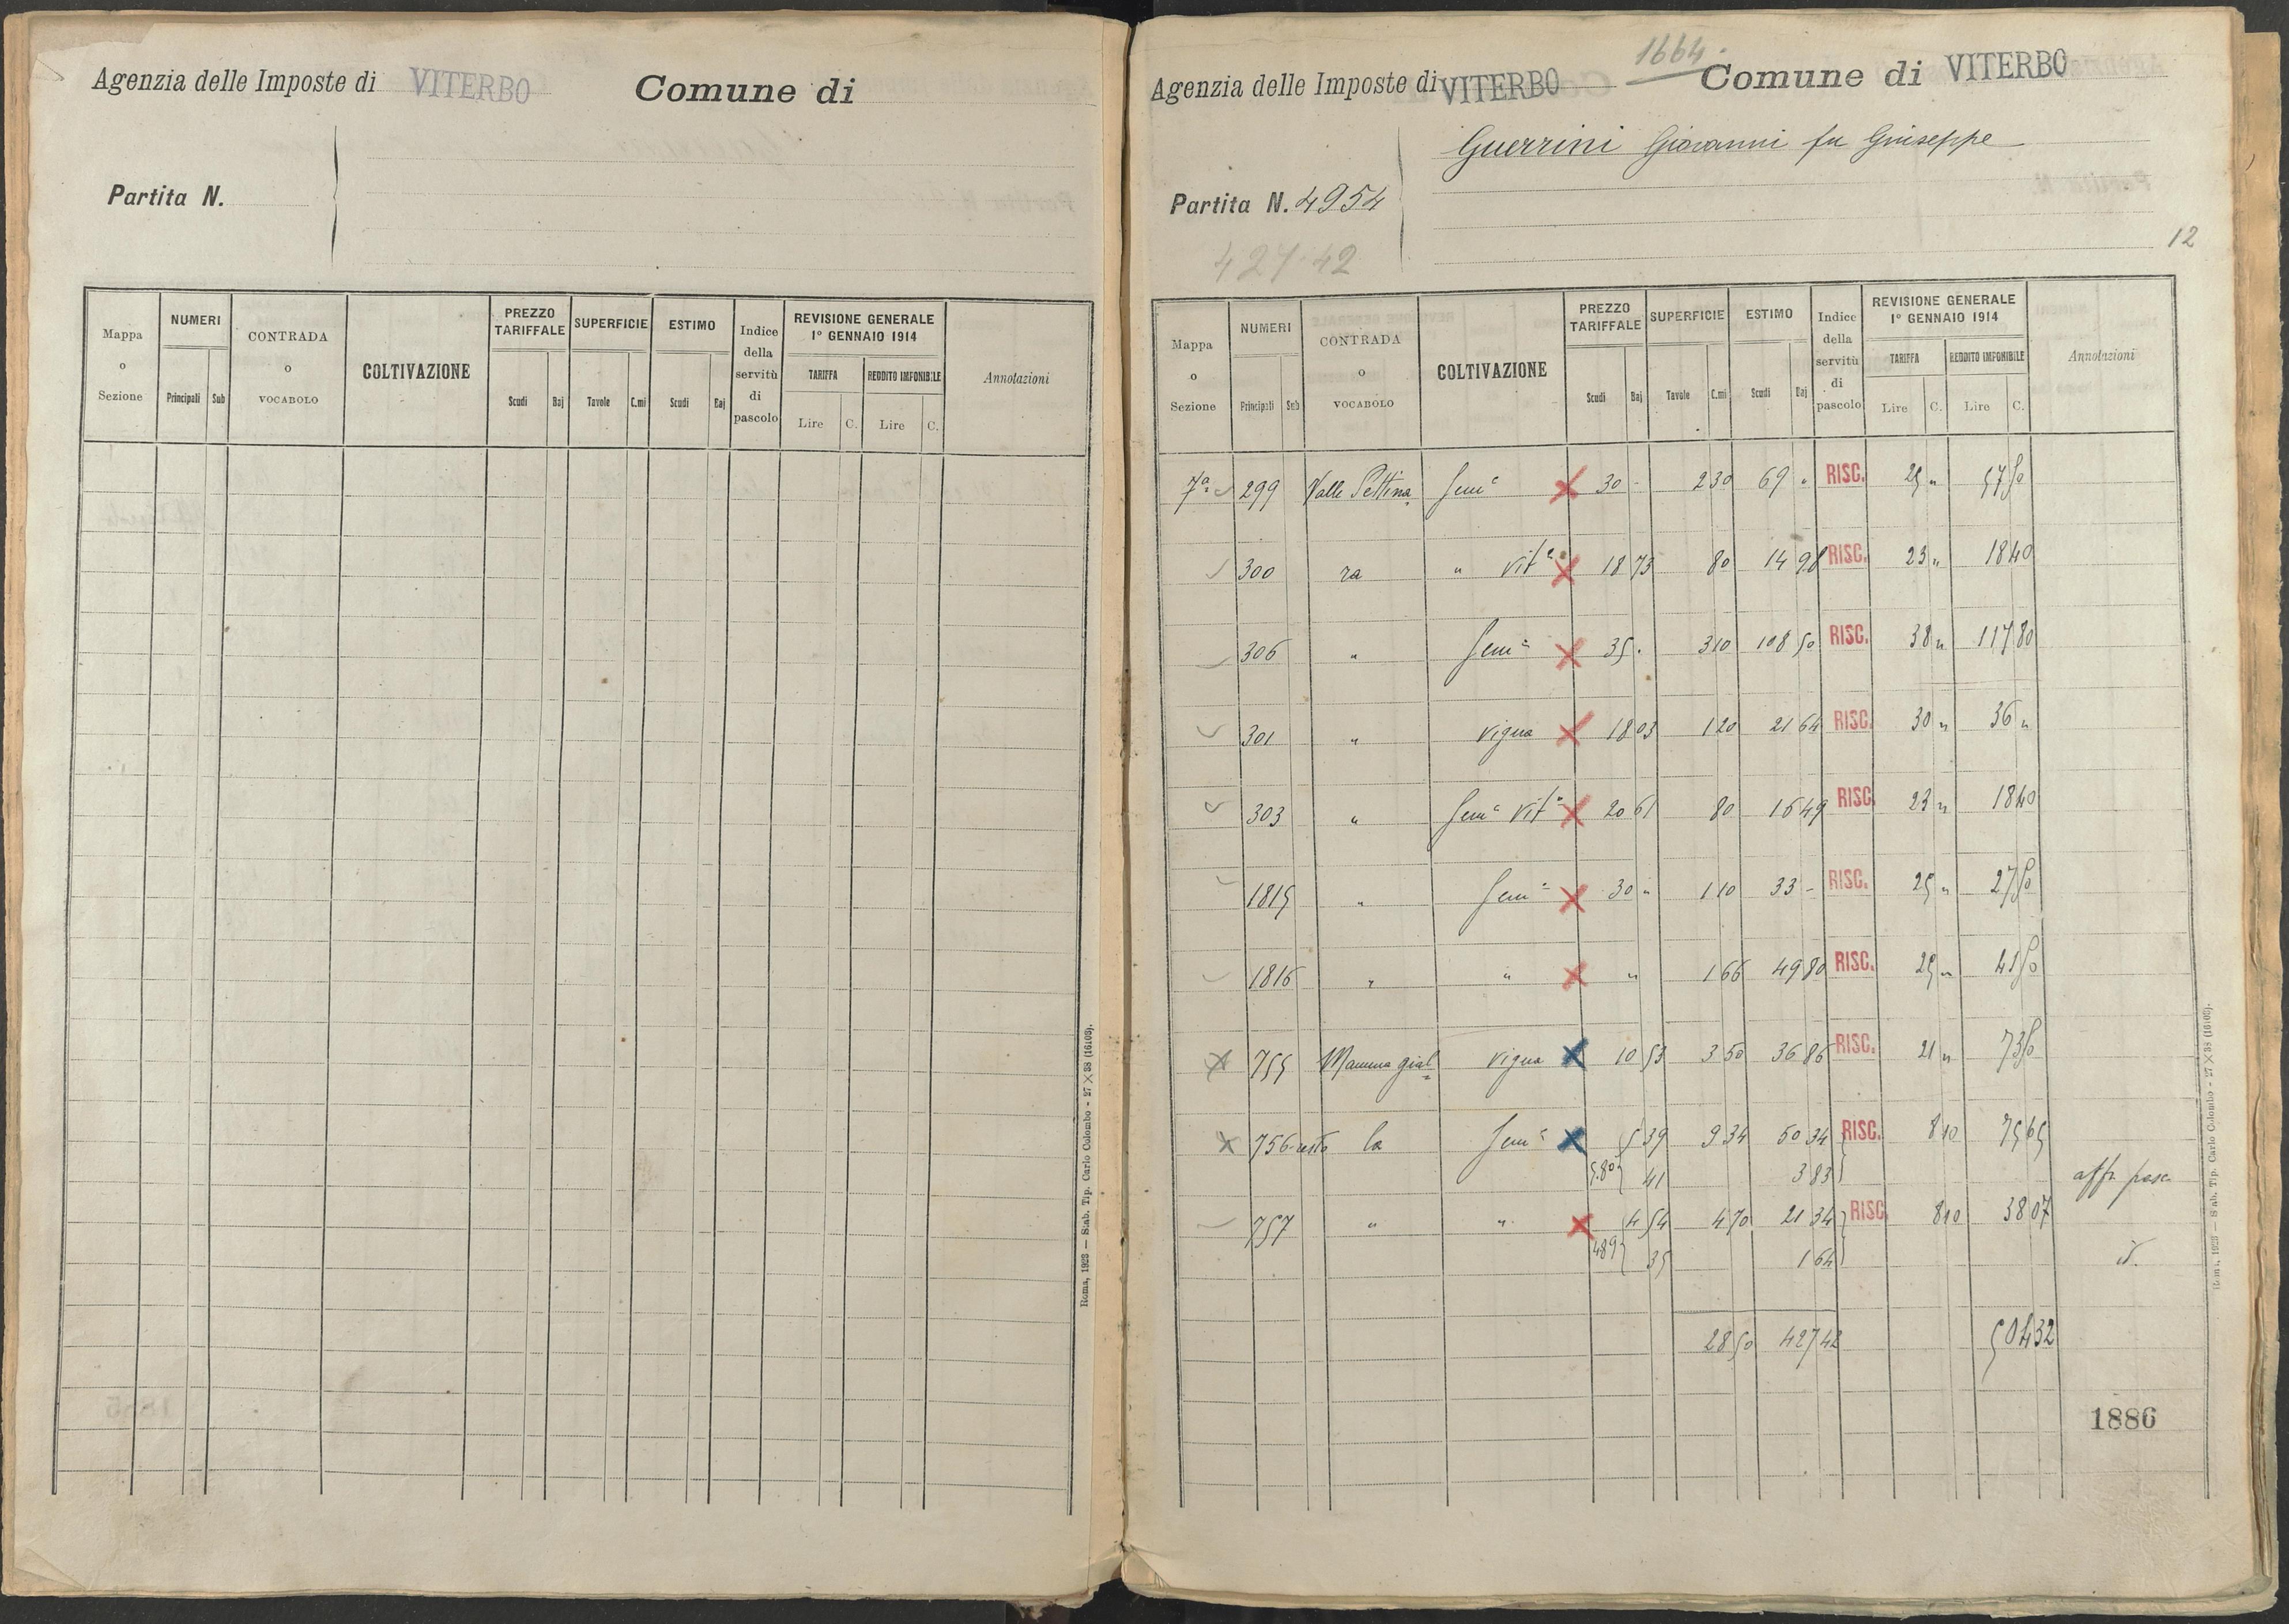 Agenzia delle Imposte di VITERBO Comune di
Partita N.
Mappa o Sezione | NUMERI Principali Sub | CONTRADA o VOCABOLO | COLTIVAZIONE | PREZZO TARIFFALE Scudi Baj | SUPERFICIE Tavole C.mi | ESTIMO Scudi Baj | Indice della servitù di pascolo | REVISIONE GENERALE 1° GENNAIO 1914 TARIFFA Lire C. REDDITO IMPONIBILE Lire C. | Annotazioni
Roma, 1923 — Stab. Tip. Carlo Colombo - 27 × 38 (16103).
1664.
Agenzia delle Imposte di VITERBO Comune di VITERBO
Guerrini Giovanni fu Giuseppe
Partita N. 4954
427.42
12
Mappa o Sezione | NUMERI Principali Sub | CONTRADA o VOCABOLO | COLTIVAZIONE | PREZZO TARIFFALE Scudi Baj | SUPERFICIE Tavole C.mi | ESTIMO Scudi Baj | Indice della servitù di pascolo | REVISIONE GENERALE 1° GENNAIO 1914 TARIFFA Lire C. REDDITO IMPONIBILE Lire C. | Annotazioni
7ª 299 Valle Pettina Sem° 30 - 2 30 69 " RISC. 25 " 57 50
300 ra " Vit° 18 73 80 14 98 RISC. 23 " 18 40
306 " Sem° 35 . 3 10 108 50 RISC. 38 " 117 80
301 " Vigna 18 03 1 20 21 64 RISC. 30 " 36 "
303 " Sem° Vit° 20 61 80 16 49 RISC. 23 " 18 40
1815 " Sem° 30 " 1 10 33 - RISC. 25 " 27 50
1816 " " " 1 66 49 80 RISC. 25 " 41 50
755 Mamma gial Vigna 10 53 3 50 36 86 RISC. 21 " 73 50
756 resto la Sem° 5 39 9 34 50 34 RISC. 8 10 75 65
5.80 41 3 83 affr. pasc.
757 " " 4 54 4 70 21 34 RISC. 8 10 38 07
489 35 1 64 id.
28 50 427 42 504 32
1886
Roma, 1923 — Stab. Tip. Carlo Colombo - 27 × 38 (16103).